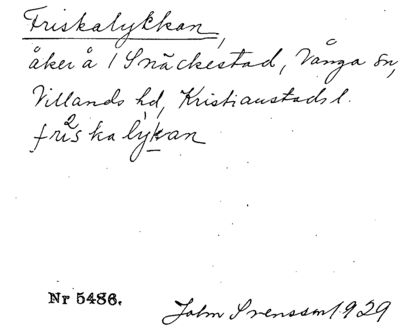 Friskalykkan,
åker å 1 Snäckestad, Vånga sn,
Villands hd, Kristianstads l.
friskalykan
Nr 5486.
John Svensson 1929